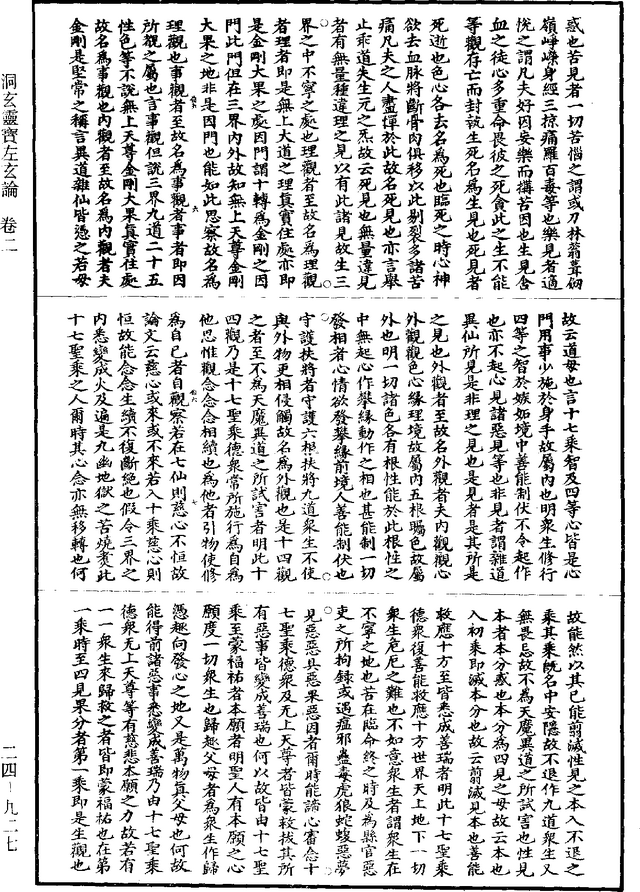 惑也苦見者一切苦惱之謂或刀林蓊葺㓚
嶺崢嶸身經三掠痛羅百毒等也樂見者適
悅之謂凡夫好因安樂而搆苦因也生見含
血之徒心多重命畏彼之死貪此之生不能
等觀存亡而封執生死名爲生見也死見者
死逝也色心各去名爲死也臨死之時心神
欲去血脉將斷骨肉俱移以此剔裂多諸苦
痛凡夫之人盡憚於此故名死見也亦言舉
止乖道失生元之炁故云死見也無量違見
者有無量種違理之見以有此諸見故生三
界之中不寧之處也理觀者至故名爲理觀
者理者即是無上大道之理真實住處亦即
是金剛大果之處因門謂十轉爲金剛之因
門此門但在三界內外故知無上天尊金剛
大果之地非是因門也能如此思察故名爲
理觀也事觀者至故名爲事觀者事者即因
所觀之屬也言事觀但說三界九道二十五
性色等不說無上天尊金剛大果真實住處
故名爲事觀也內觀者至故名爲內觀者夫
金剛是堅常之稱言異道雜仙皆憑之若母
故云道母也言十七乘智及四等心皆是心
門用事少施於身手故屬內也明衆生修行
四等之智於嫉妬境中善能制伏不令起作
也亦不起心見諸惡見等也非見者謂雜道
異仙所見是非理之見也是見者是其所是
之見也外觀者至故名外觀者夫內觀觀心
外觀觀色心緣理境故屬內五根矚色故屬
外也明一切諸色各有根性能於此根性之
中無起心作攀緣動作之相也甚能制一切
發相者心情欲發攀緣前境人善能制伏也
守護扶將者守護六根扶將九道衆生不使
與外物更相侵觸故名爲外觀也是十四觀
之者至不爲天魔異道之所試害者明此十
四觀乃是十七聖乘德衆常所施行爲自爲
他思惟觀念念念相續也爲他者引物使修
爲自己者自觀察若在七仙則慈心不恒故
論文云慈心或來或不來若入十乘慈心則
恒故能念念生續不復斷絕也假令三界之
內悉變成火及遍是九幽地獄之苦燒煑此
十七聖乘之人爾時其心念亦無移轉也何
故能然以其已能前滅性見之本入不退之
乘其乘旣名中安隱故不退作九道衆生又
無畏忌故不爲天魔異道之所試害也性見
本者本分惑也本分爲四見之母故云本也
入初乘即滅本分也故云前滅見本也善能
救應十方至皆悉成善瑞者明此十七聖乘
德衆復善能救應十方世界天上地下一切
衆生危厄之難也不如意衆生者謂衆生在
不寧之地也苦在臨命終之時及爲縣官惡
吏之所拘錄或遇症邪蠱毒虎狼蛇蝮惡夢
見惡惡具惡果惡因者爾時能諦心審念十
七聖乘德衆及无上天尊者皆蒙救拔其所
有惡事皆變成善瑞也何以故皆由十七聖
乘至蒙福祐者本願者明聖人有本願之心
願度一切衆生也歸趣父母者爲衆生作歸
憑趣向發心之地又是萬物真父母也何故
能得前諸惡事悉變成善瑞乃由十七聖乘
德衆无上天尊等有慈悲本願之力故若有
一一衆生來歸救之者皆即蒙福祐也在第
一乘時至四見果分者第一乘即是生觀也
洞玄靈寶左玄論　卷二
二四–九二七